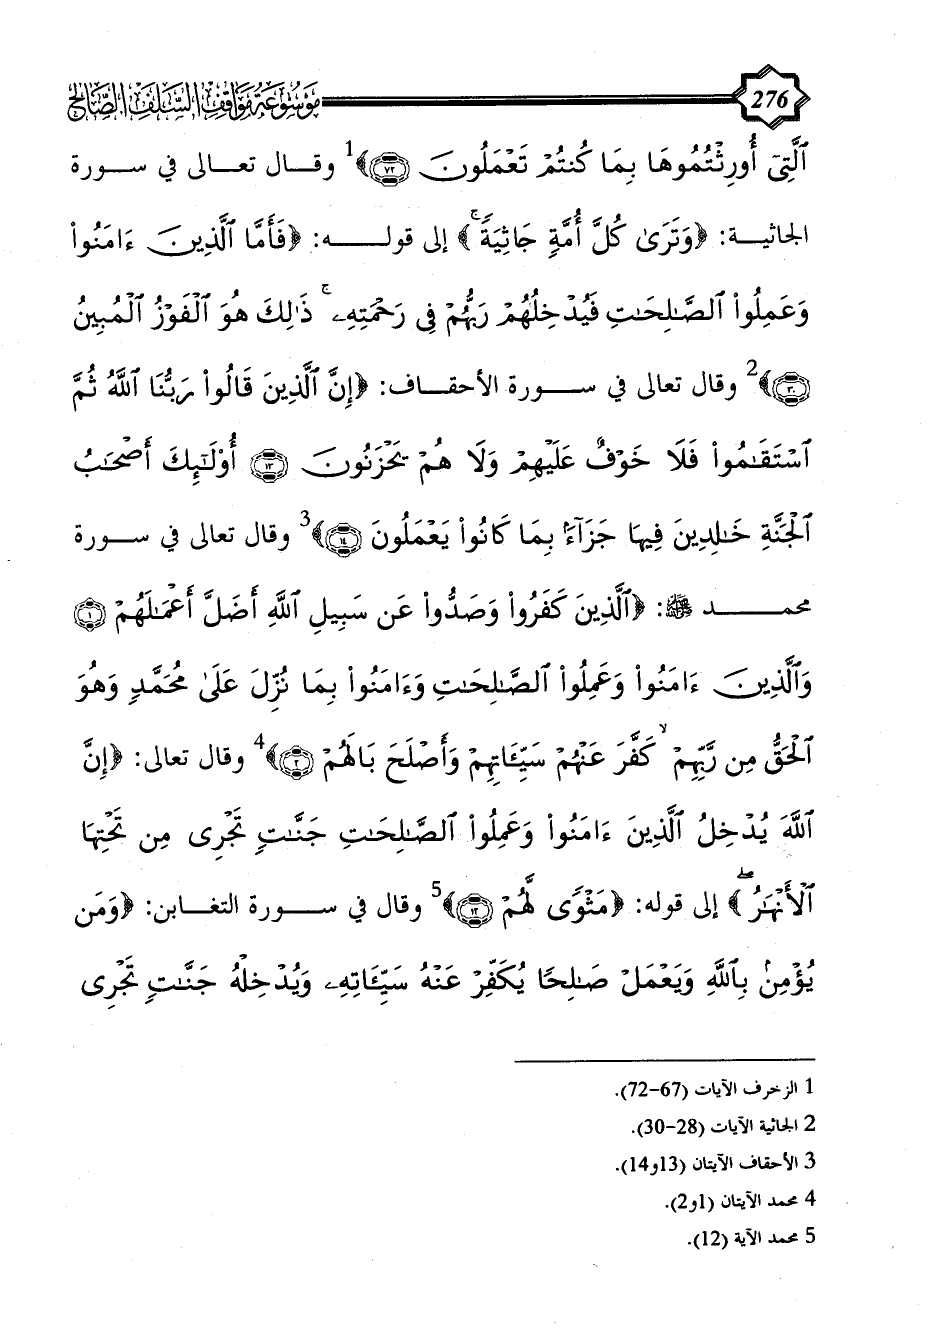 276
موسوعة مواقف السلف الصالح
ٱلَّتِيٓ أُورِثْتُمُوهَا بِمَا كُنتُمْ تَعْمَلُونَ ﴿٧٢﴾﴾1 وقـال تعـالى في سـورة
الجاثيـة: ﴿وَتَرَىٰ كُلَّ أُمَّةٍ جَاثِيَةً ۚ﴾ إلى قولـه: ﴿فَأَمَّا ٱلَّذِينَ ءَامَنُوا۟
وَعَمِلُوا۟ ٱلصَّـٰلِحَـٰتِ فَيُدْخِلُهُمْ رَبُّهُمْ فِى رَحْمَتِهِۦ ۚ ذَٰلِكَ هُوَ ٱلْفَوْزُ ٱلْمُبِينُ
﴿٣٠﴾﴾2 وقال تعالى في سـورة الأحقـاف: ﴿إِنَّ ٱلَّذِينَ قَالُوا۟ رَبُّنَا ٱللَّهُ ثُمَّ
ٱسْتَقَـٰمُوا۟ فَلَا خَوْفٌ عَلَيْهِمْ وَلَا هُمْ يَحْزَنُونَ ﴿١٣﴾ أُو۟لَـٰٓئِكَ أَصْحَـٰبُ
ٱلْجَنَّةِ خَـٰلِدِينَ فِيهَا جَزَآءًۢ بِمَا كَانُوا۟ يَعْمَلُونَ ﴿١٤﴾﴾3 وقال تعالى في سـورة
محمـد ﷺ: ﴿ٱلَّذِينَ كَفَرُوا۟ وَصَدُّوا۟ عَن سَبِيلِ ٱللَّهِ أَضَلَّ أَعْمَـٰلَهُمْ ﴿١﴾
وَٱلَّذِينَ ءَامَنُوا۟ وَعَمِلُوا۟ ٱلصَّـٰلِحَـٰتِ وَءَامَنُوا۟ بِمَا نُزِّلَ عَلَىٰ مُحَمَّدٍ وَهُوَ
ٱلْحَقُّ مِن رَّبِّهِمْ ۙ كَفَّرَ عَنْهُمْ سَيِّـَٔاتِهِمْ وَأَصْلَحَ بَالَهُمْ ﴿٢﴾﴾4 وقال تعالى: ﴿إِنَّ
ٱللَّهَ يُدْخِلُ ٱلَّذِينَ ءَامَنُوا۟ وَعَمِلُوا۟ ٱلصَّـٰلِحَـٰتِ جَنَّـٰتٍ تَجْرِى مِن تَحْتِهَا
ٱلْأَنْهَـٰرُ ۖ﴾ إلى قوله: ﴿مَثْوًى لَّهُمْ ﴿١٢﴾﴾5 وقال في سـورة التغـابن: ﴿وَمَن
يُؤْمِنۢ بِٱللَّهِ وَيَعْمَلْ صَـٰلِحًا يُكَفِّرْ عَنْهُ سَيِّـَٔاتِهِۦ وَيُدْخِلْهُ جَنَّـٰتٍ تَجْرِى
1 الزخرف الآيات (67-72).
2 الجاثية الآيات (28-30).
3 الأحقاف الآيتان (13و14).
4 محمد الآيتان (1و2).
5 محمد الآية (12).